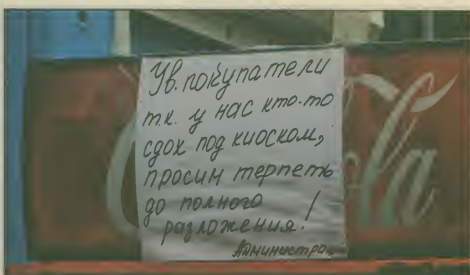 Ув. покупатели
т.к. у нас кто-то
сдох под киоском,
просим терпеть
до полного
разложения!
Администрац